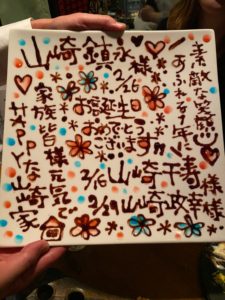 山崎鎮永様
2/16
お誕生日
おめでとう
ございます!!
2/16 山崎千壽様
2/19 山崎政幸様
素敵な笑顔
あふれる1年に
家族皆様元気で
HAPPYな山崎家